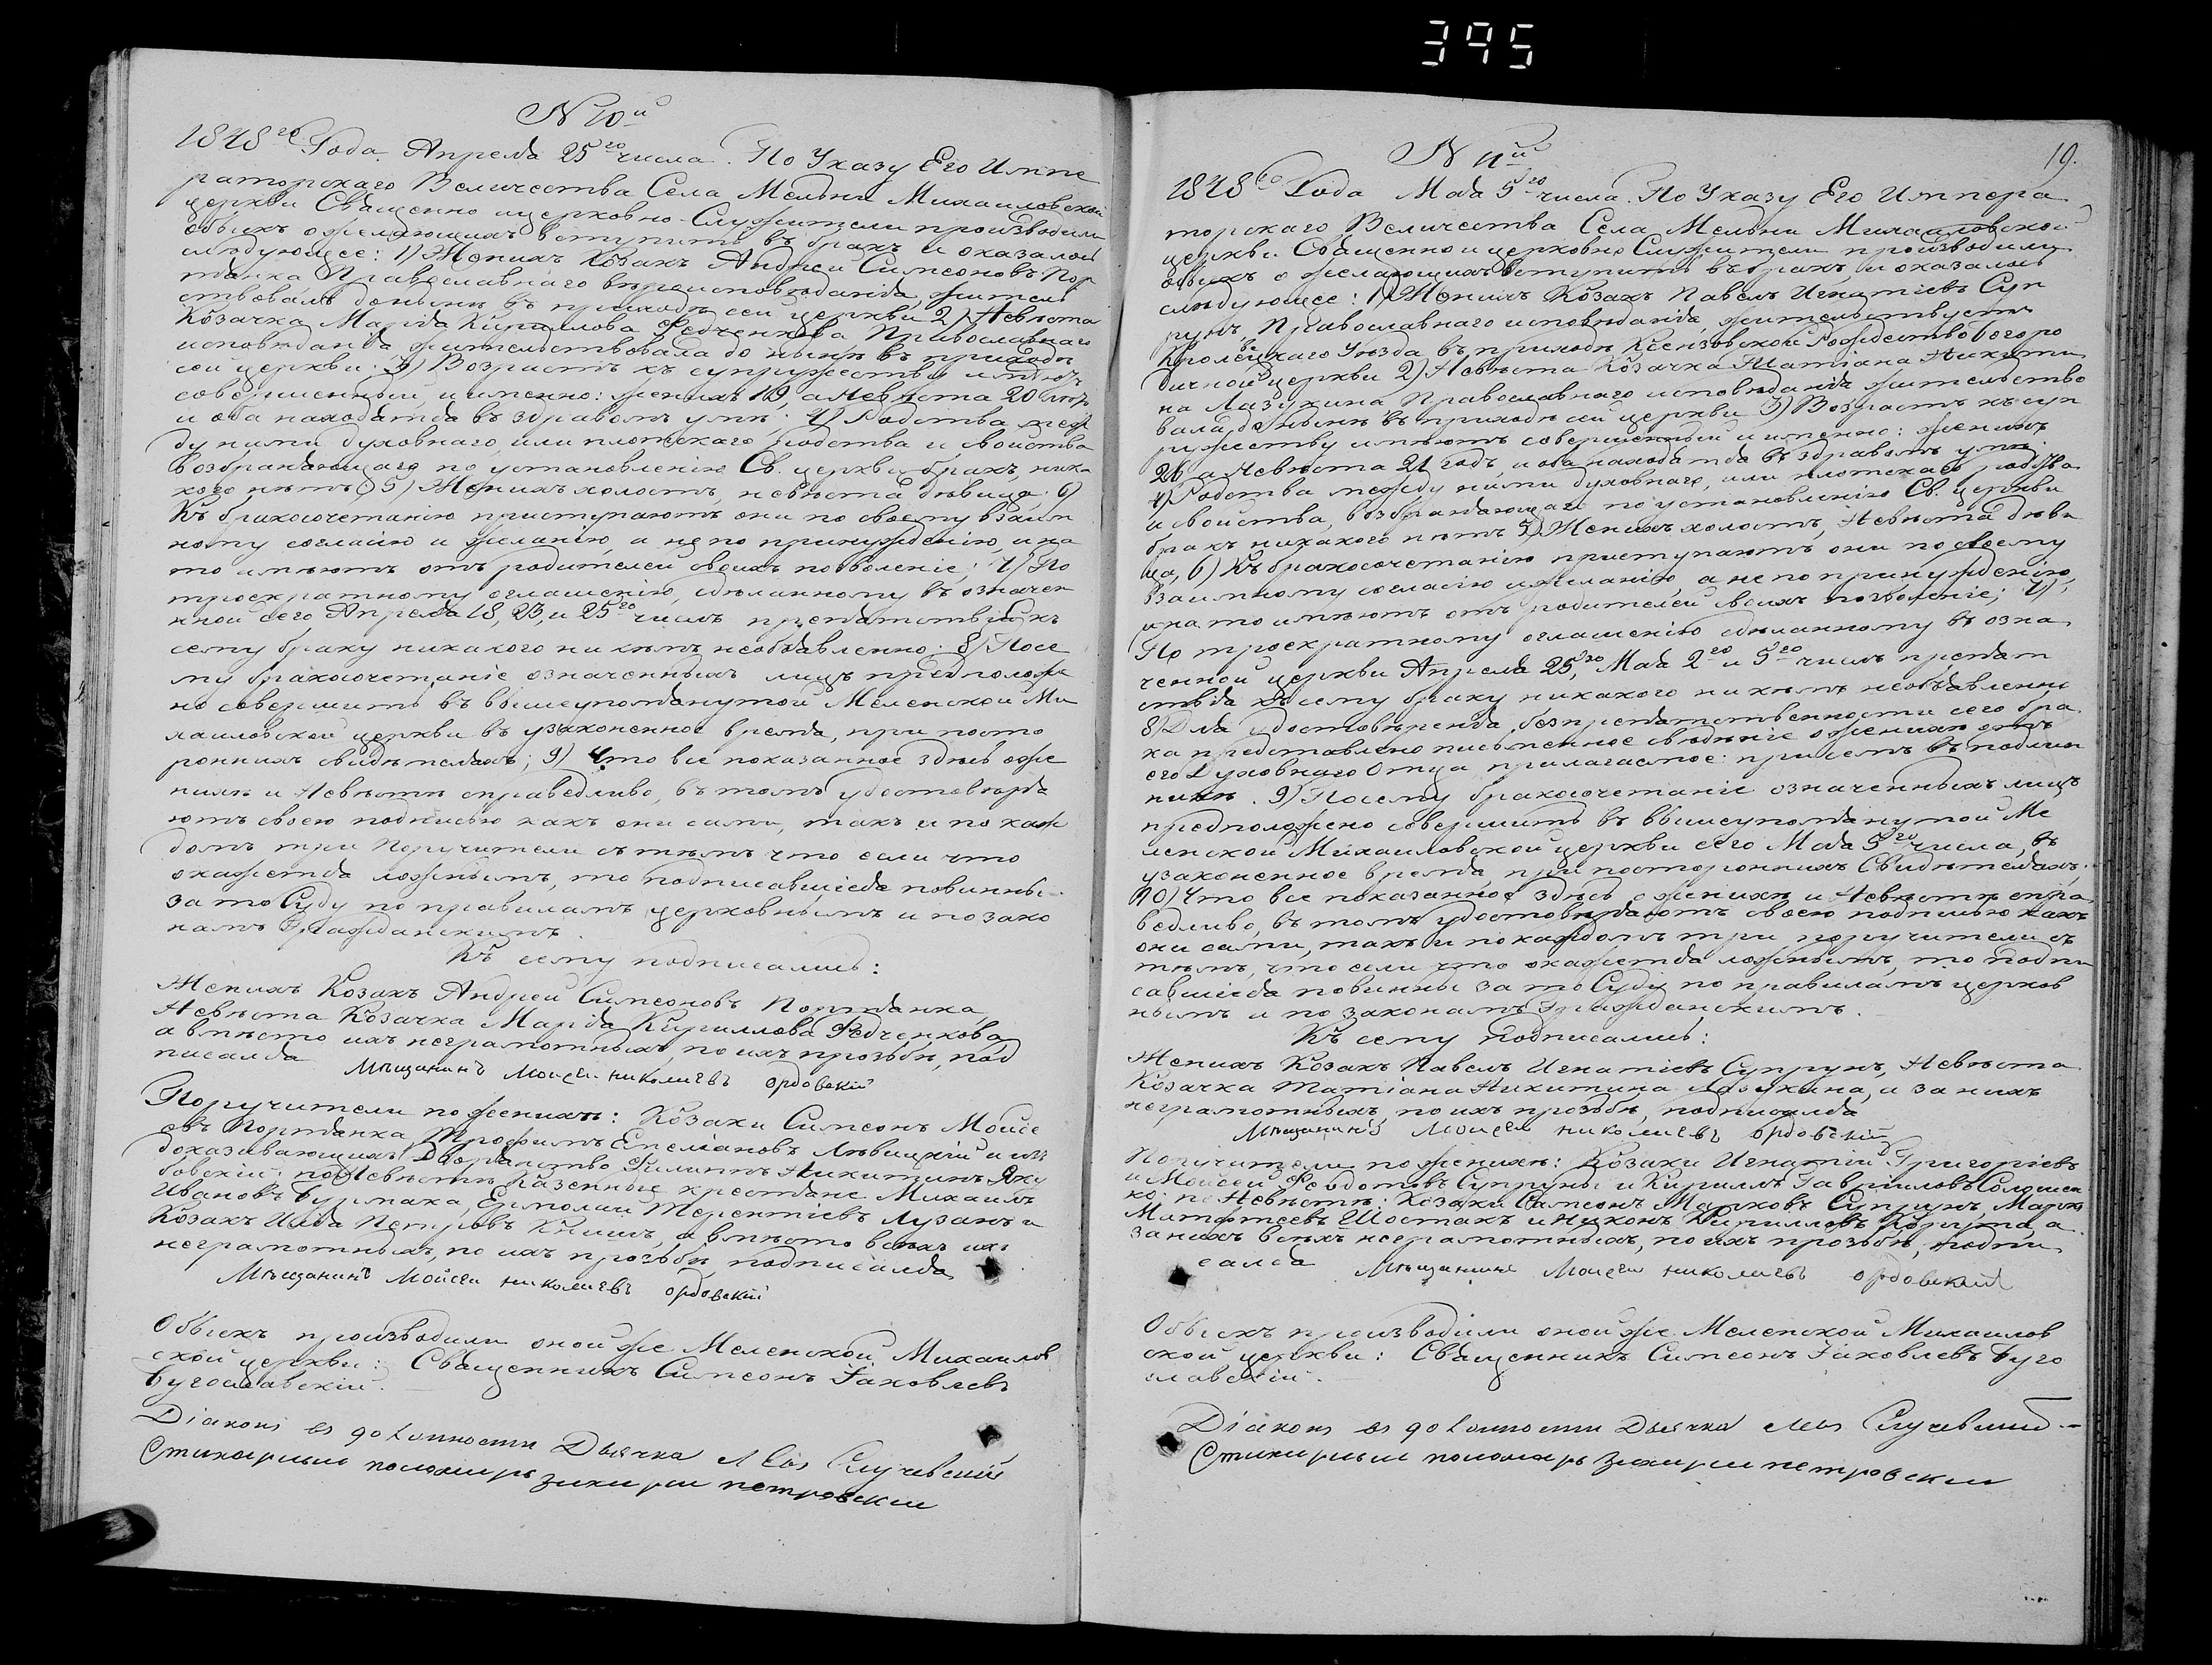 395
N 10й
1848го Года Апреля 25го числа. По Указу Его Импе
раторскаго Величества Села Мельни Михаиловской
церкви Священно и церковно-Служители производили
обыск о желающихъ вступить въ бракъ и оказалось
следующее: 1) Женихъ Козакъ Андрей Симеоновъ Пор
танка Православнаго вероисповеданія, житель
ствовалъ доныне въ приходе сей церкви 2) Невеста
Козачка Марія Кириллова Федченкова, Православнаго
исповеданія жительствовала до ныне въ приходе
сей церкви. 3) Возрастъ къ супружеству имеютъ
совершенный, и именно: женихъ 19, а Невеста 20 годъ
и оба находятся въ здравомъ уме; 4) Родства меж
ду ними духовнаго, или плотскаго родства и свойства
возбраняющаго по установленію Св. церкви бракъ, ника
кого нетъ; 5) Женихъ холостъ, невеста девица. 6)
Къ бракосочетанію приступаютъ они по своему взаим
ному согласію и желанію, а не по принужденію, и на
то имеютъ отъ родителей своихъ позволеніе; 7) По
троекратному оглашенію, сделанному въ означен
ной сего Апреля 18, 23, и 25го числъ препятствія къ
сему браку никакого никемъ необъявленно. 8) Посе
му бракосочетаніе означенныхъ лицъ предположе
но совершить въ вышеупомянутой Меленской Ми
хаиловской церкви въ узаконенное время, при посто
роннихъ свидетеляхъ; 9) Что все показанное здесь о же
нихе и Невесте справедливо, въ томъ удостоверя
ютъ своею подписью какъ они сами, такъ и по каж
домъ три Поручители съ темъ что если что
окажется ложнымъ, то подписавшіеся повинны
за то Суду по правиламъ церковнымъ и по зако
намъ Гражданскимъ.
Къ сему подписались:
Женихъ Козакъ Андрей Симеоновъ Портянка
Невеста Козачка Марія Кириллова Федченкова
а вместо ихъ неграмотныхъ, по ихъ прозьбе, под
писался Мещанинъ Моисей Николаевъ Ордовскій
Поручители по женихе: Козаки Симеонъ Мойсе
евъ Портянка, Трофимъ Емеліановъ Левицкій и изъ
доказывающихъ Дворянство Филиппъ Никитинъ Яку
бовскій; по Невесте Казенные крестяне Михаилъ
Ивановъ Бурмака, Ермолай Терентіевъ Лузанъ и
Козакъ Илья Петровъ Книшъ, а вместо всехъ ихъ
неграмотныхъ, по ихъ прозьбе подписался
Мещанинъ Мойсей Николаевъ Ордовскій
Обыскъ производили оной же Меленской Михаилов
ской церкви: Священникъ Симеонъ Іаковлевъ
Бугославскій.
Діаконъ въ должности Дьячка Левъ Случевскій
Стихарный пономарь Захарій Петровскій
19.
N 11й
1848го Года Мая 5го числа. По Указу Его Импера
торскаго Величества Села Мельни Михаиловской
церкви Священно и церковно Служители производили
обыскъ о желающихъ вступить въ бракъ и оказалось
следующее: 1) Женихъ Козакъ Павелъ Игнатіевъ Суп
рунъ, Православнаго исповеданія, жительствуетъ
Кролевецкаго Уезда, въ приходе Ксензовской Рождество Богоро
дичной церкви 2) Невеста Козачка Татіана Никити
на Лазукина Православнаго исповеданія жительство
вала доныне въ приходе сей церкви 3) Возрастъ къ суп
ружеству имеютъ совершенный и именно: женихъ
26 а Невеста 21 годъ, и оба находятся въ здравомъ уме.
4) Родства между ними духовнаго, или плотскаго родства
и свойства, возбраняющаго по установленію Св. церкви
бракъ никакого нетъ 5) Женихъ холостъ, Невеста деви
ца, 6) Къ бракосочетанію приступаютъ они по своему
взаимному согласію и желанію, а не по принужденію,
и на то имеютъ отъ родителей своихъ позволеніе; 7)
По троекратному оглашенію сделанному въ озна
ченной церкви Апреля 25го, Мая 2го и 5го числъ препят
ствія къ сему браку никакого никемъ необъявленно
8) Для удостоверенія безпрепятственности сего бра
ка представлено письменное сведеніе о женихе отъ
его Духовнаго Отца прилагаемое при семъ въ подлин
нике. 9) Посему бракосочетаніе означенныхъ лицъ
предположено совершить въ вышеупомянутой Ме
ленской Михаиловской церкви сего Мая 5го числа, въ
узаконенное время, при постороннихъ Свидетеляхъ.
10) Что все показанное здесь о женихе и Невесте спра
ведливо, въ томъ удостоверяютъ своею подписью какъ
они сами, такъ и по каждомъ три поручители съ
темъ, что если что окажется ложнымъ, то подпи
савшіеся повинны за то Суду по правиламъ церков
нымъ и по законамъ Гражданскимъ.
Къ сему подписались:
Женихъ Козакъ Павелъ Игнатіевъ Супрунъ, Невеста
Козачка Татіана Никитина Лазукина, и за нихъ
неграмотныхъ, по ихъ прозьбе, подписался
Мещанинъ Моисей Николаевъ Ордовскій
Поручители по женихе: Козаки Игнатій Григоріевъ
и Мойсей Федотовъ Супруны и Кириллъ Гавриловъ Соломен
ко; по Невесте: Козаки Самсонъ Марковъ Супрунъ, Марко
Матфеевъ Шостакъ и Никонъ Кирилловъ Корута, а
за нихъ всехъ неграмотныхъ, по ихъ прозьбе, подпи
сался Мещанинъ Моисей Николаевъ Ордовскій
Обыскъ производили оной же Меленской Михаилов
ской церкви: Священникъ Симеонъ Іаковлевъ Буго
славскій.
Діаконъ въ должности Дьячка Левъ Случевскій
Стихарный пономарь Захарій Петровскій